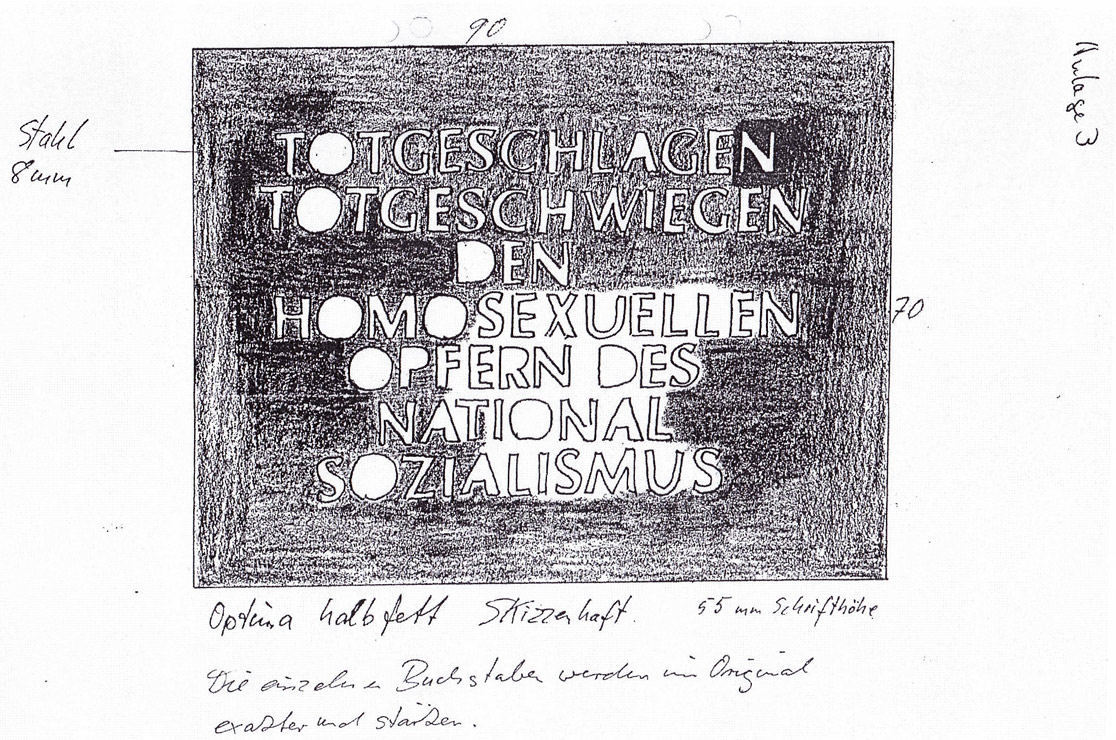 90
Anlage 3
Stahl
8 mm
TOTGESCHLAGEN
TOTGESCHWIEGEN
DEN
HOMOSEXUELLEN
OPFERN DES
NATIONAL
SOZIALISMUS
70
Optima halbfett Skizzenhaft. 55 mm Schrifthöhe
Die einzelnen Buchstaben werden im Original
exakter und stärker.